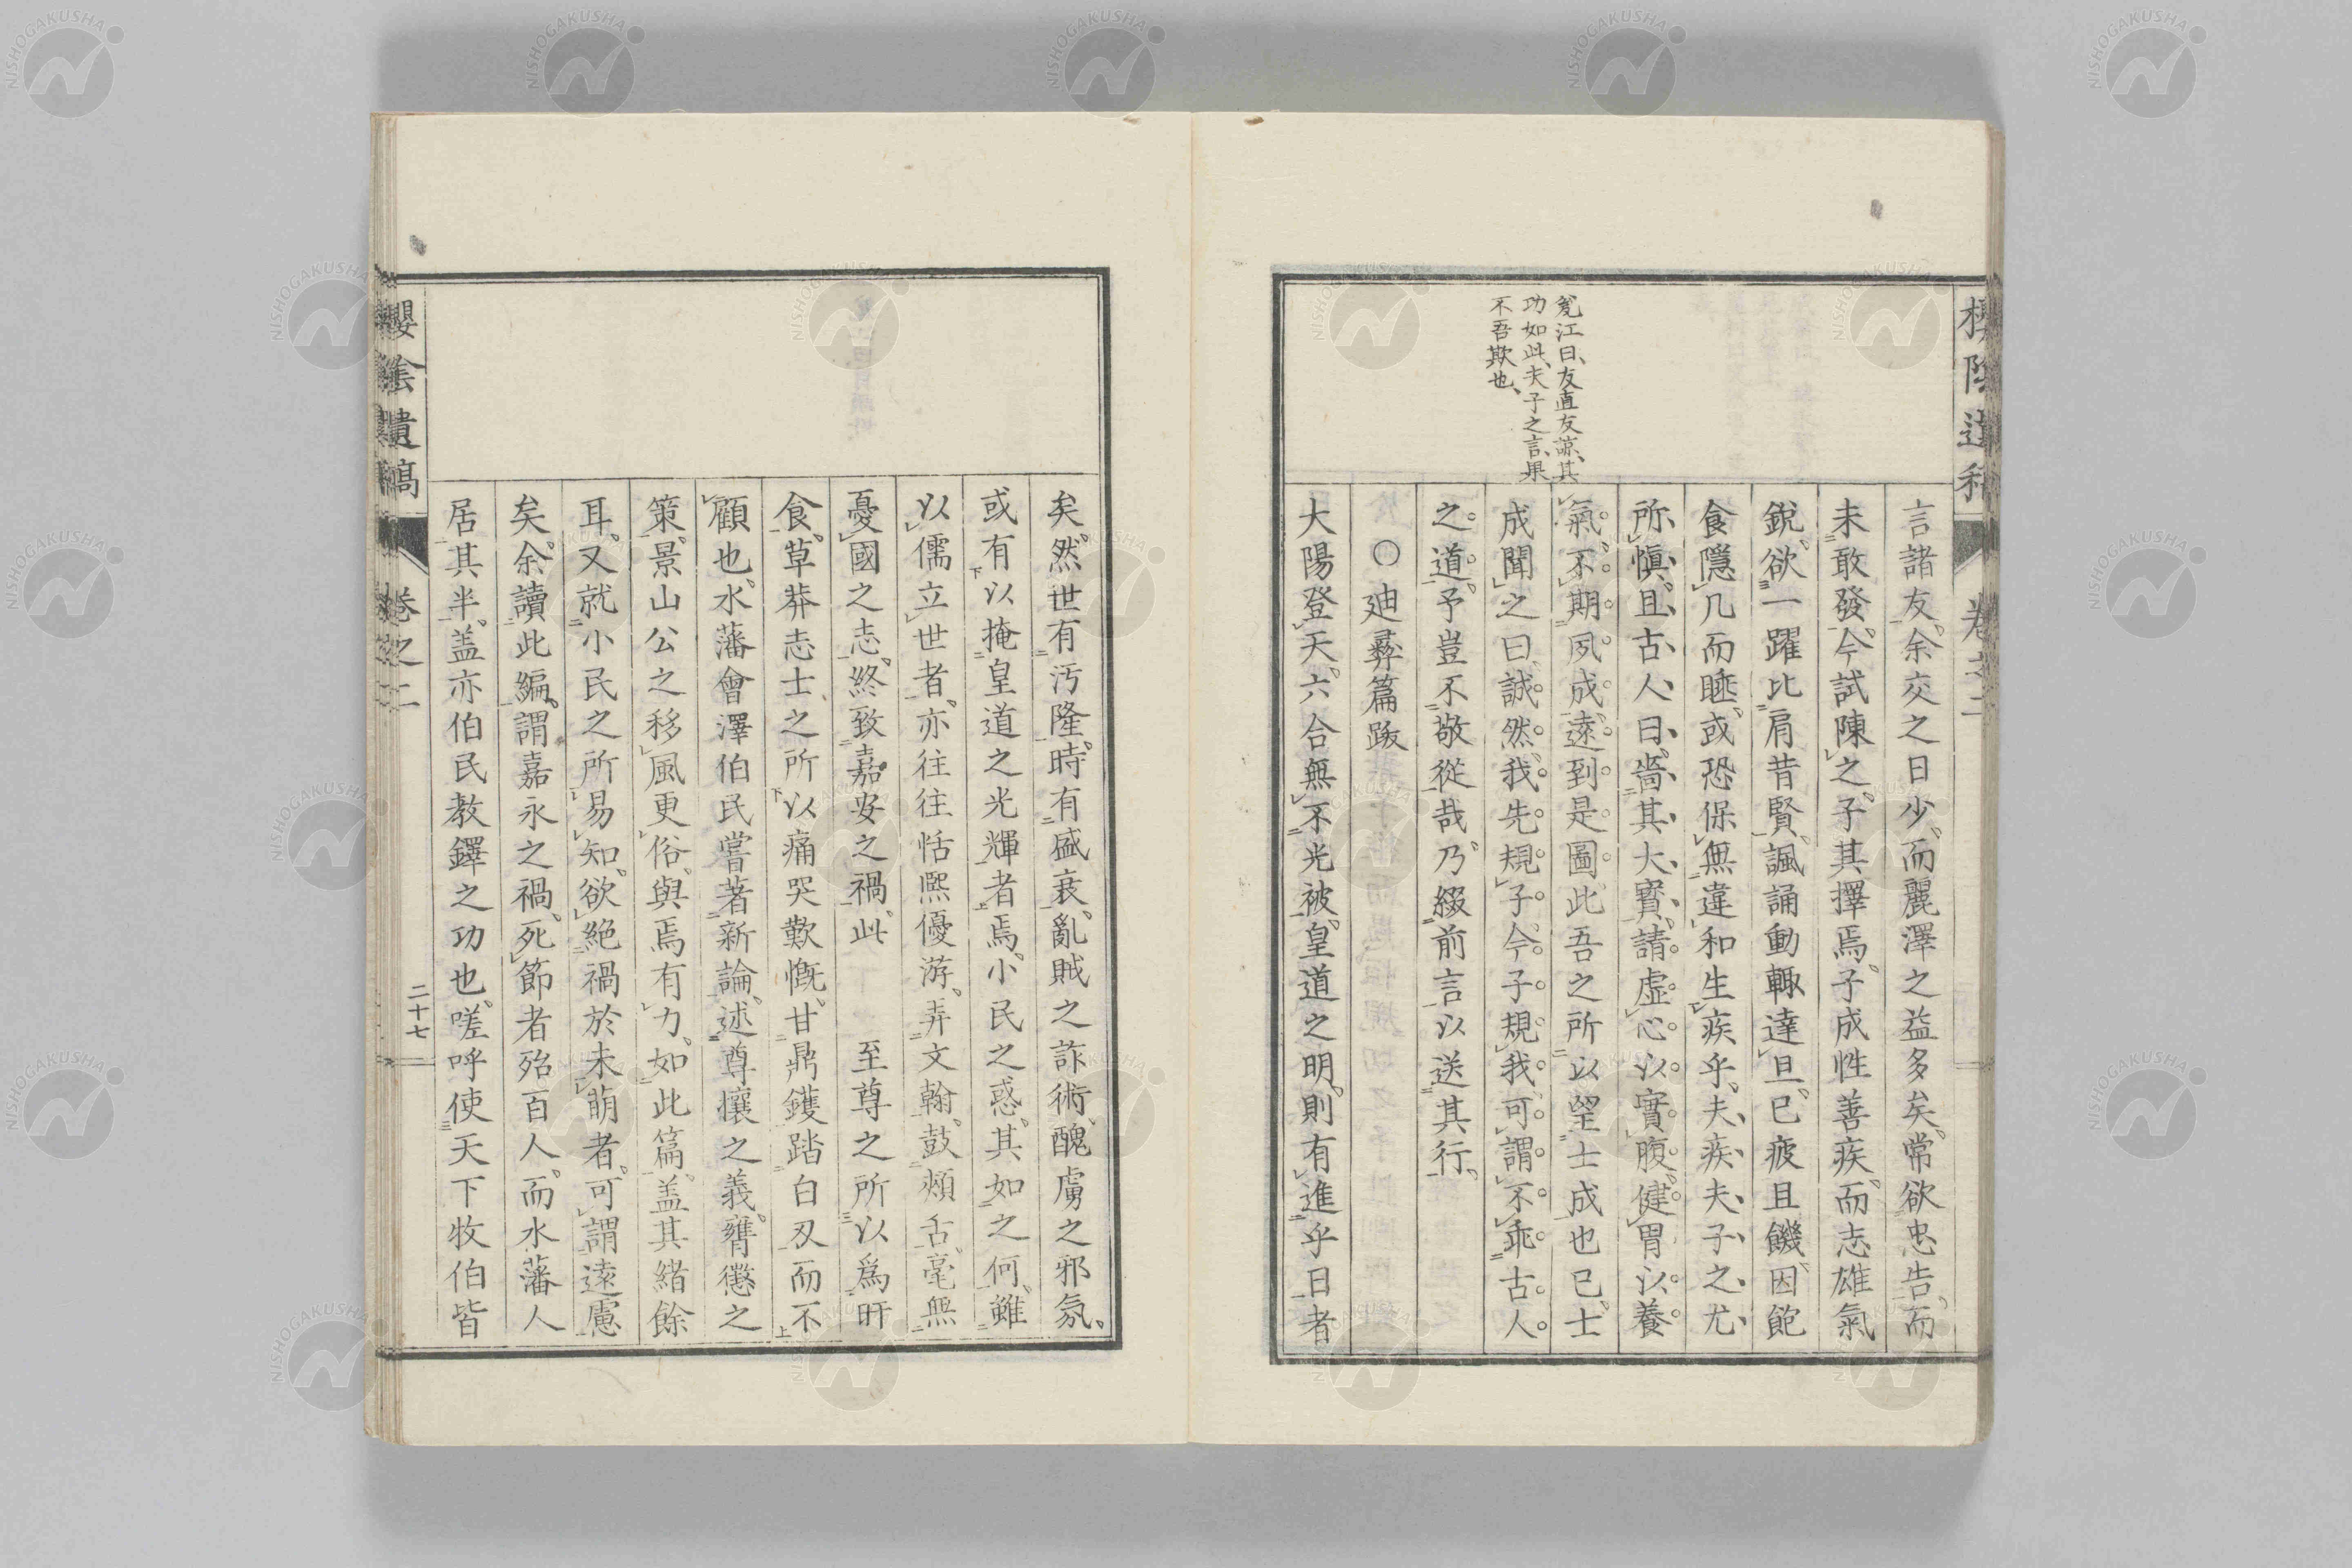 言諸友、余交之日少、而麗澤之益多矣、常欲忠告、而
未敢發、今試陳之、子其擇焉、子成性善疾、而志雄氣
銳、欲一躍比肩昔賢、諷誦動輙達旦、已疲且饑、因飽
食隱几而睡、或恐保無違和生疾乎、夫疾夫子之尤
所愼、且古人曰、嗇其大寳、請虛心以實腹、健胃以養
氣、不期夙成、遠到是圖、此吾之所以望士成也已、士
成聞之曰、誠然、我先規子、今子規我、可謂不乖古人
之道、予豈不敬從哉、乃綴前言以送其行、
○廸彝篇跋
大陽登天、六合無不光被、皇道之明、則有進乎日者
寃江曰、友直友諒、其
功如此、夫子之言、果
不吾欺也、
卷之二
矣、然世有汚隆、時有盛衰、亂賊之詐術、醜虜之邪氛、
或有以掩皇道之光輝者焉、小民之惑、其如之何、雖
以儒立世者、亦往往恬熈優游、弄文翰、鼓頰舌、毫無
憂國之志、終致嘉安之禍、此 至尊之所以爲旰
食、草莽志士之所以痛哭歎慨、甘鼎鑊踏白刃而不
顧也、水藩會澤伯民嘗著新論、述尊攘之義、膺懲之
策、景山公之移風更俗、與焉有力、如此篇、盖其緒餘
耳、又就小民之所易知、欲絶禍於未萌者、可謂遠慮
矣、余讀此編、謂嘉永之禍、死節者殆百人、而水藩人
居其半、盖亦伯民教鐸之功也、嗟呼使天下牧伯皆
櫻陰遺稿
卷之二
二十七
NISHOGAKUSHA